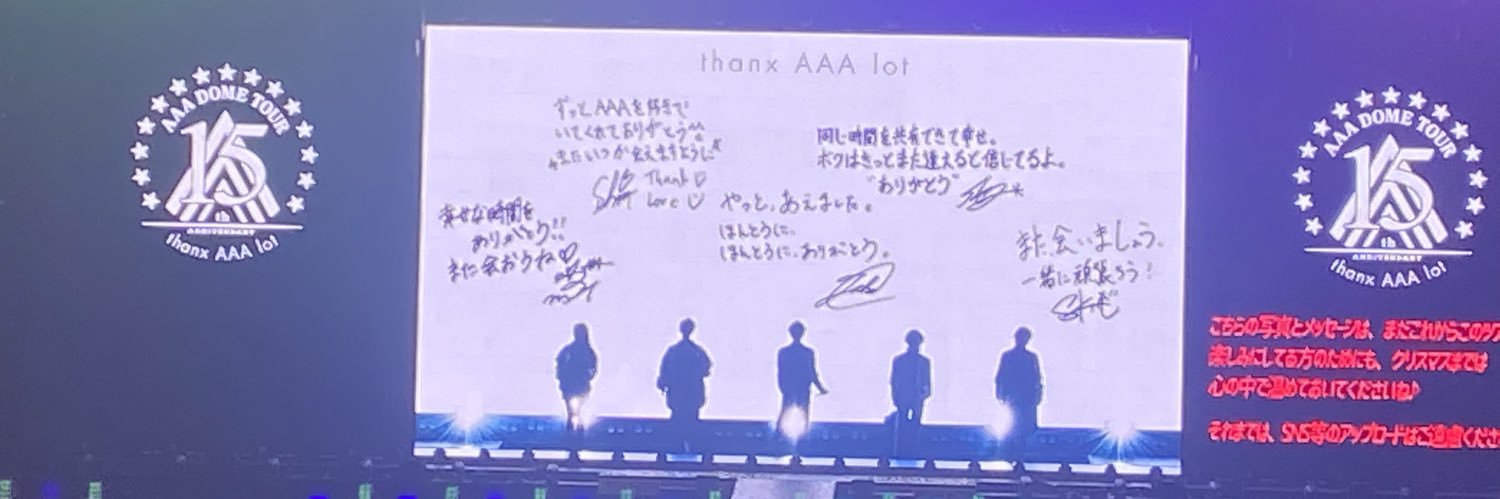 AAA DOME TOUR
15
th
ANNIVERSARY
thanx AAA lot
thanx AAA lot
ずっとAAAを好きで
いてくれてありがとう^^
またいつか会えますように
Thank♡
Love♡
同じ時間を共有できて幸せ。
ボクはきっとまた逢えると信じてるよ。
"ありがとう"
幸せな時間を
ありがとう!!
また会おうね♡
やっと、あえました。
ほんとうに、
ほんとうに、ありがとう。
また会いましょう。
一緒に頑張ろう!
AAA DOME TOUR
15
th
ANNIVERSARY
thanx AAA lot
こちらの写真とメッセージは、まだこれからこのツア
楽しみにしてる方のためにも、クリスマスまでは
心の中で温めておいてくださいね♪
それまでは、SNS等のアップロードはご遠慮くださ